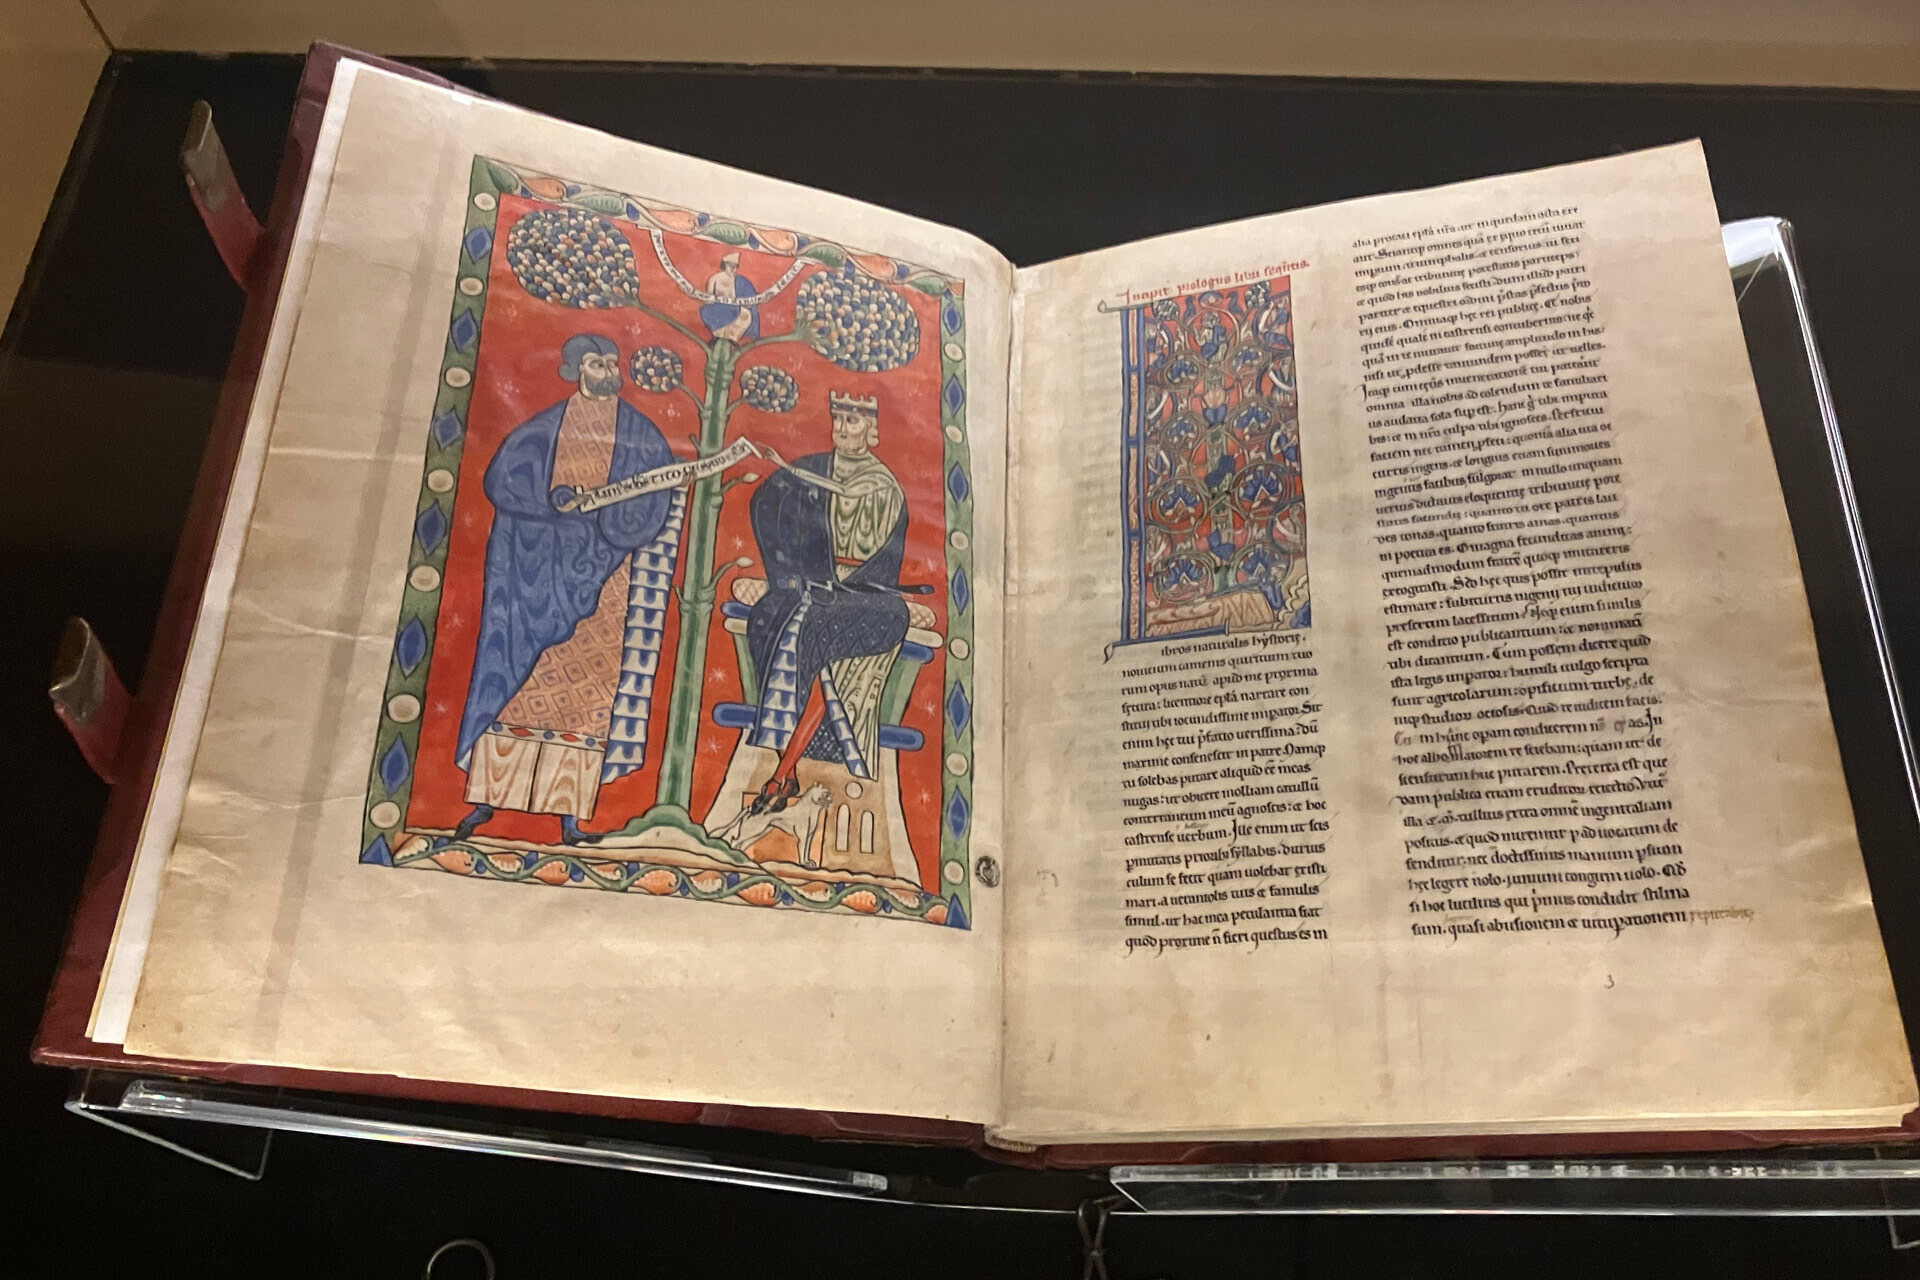 Incipit prologus libri sequentis.
libros naturalis hystorie.
nouicium camenis quiritium tuo
rum opus natū apud me proxima
fetura: licentiore epta narrare con
stitui tibi iocundissime impator. Sit
enim hęc tui pfatio uerissima: dū
maximi consenescit in patre. Namq
tu solebas putare aliquid eē meas
nugas: ut obicere molliam catullū
conterraneum meū agnoscis: & hoc
castrense uerbum. Ille enim ut scis
pmutatis priorib; syllabis. durius
culum se fecit quam uolebat
a ueraniolis tuis & famulis
simul. ut hac mea petulantia fiat
quod proxime ñ fieri questus es in
alia procaci epła nra. ut in quedam acta exe
ant. Sciantq omnes quā ex equo tecū uiuat
impium. triumphalis. & censorius. tu sexi
esq consul. ac tribunicię potestatis particeps:
& quod his nobilius fecisti dum illud patri
pariter & equestri ordini pstas pfectus pto
rij eius. Omniaq hęc rei publice. Et nobis
quidē qualis in castrensi contubernio: nec qcq̄
mutauit fortunę amplitudo in his:
nisi ut pdesse tantundem posses ut uelles.
Itaq cum cęteris in uenerationē tui pateant
omnia illa: nobis ad colendum te familiari
us audatia sola supest. hanc g tibi imputa
bis: & in nrā culpa tibi ignosces. Perfricui
faciem nec tamen pfeci: quoniā alia uia oc
curris ingens. & longius etiam summoues
ingenii facibus. fulgorat in nullo unquam
uerius dictatus eloquentię tribunicię pote
statis facundię: quanto tu ore patris lau
des tonas. quanto fratris amas. quantus
in poetica es. O magna fecunditas animi:
quemadmodum fratrē quoq imitareris
excogitasti. Sed hęc quis possit intrepidus
estimare: subiturus ingenij tui iudicium
presertim lacessitum? Neq enim similis
est conditio publicantium: & nominatī
tibi dicantium. Cum possem dicere quid
ista legis impator? humili uulgo scripta
sunt agricolarum: opificum turbę. de
niq studiorum ociosis. Quid te iudicem facis.
Cum hanc opam condicerem nō eras. In
hoc albo. Maiorem te sciebam: quam ut de
scensurum huc putarem. Preterea est que
dam publica etiam eruditorum reiectio. Vtit
illa & M. tullius extra omnē ingenii aliam
positus. & quod miremur p aduocatum de
fenditur: nec doctissimis manium psium
hęc legere nolo. iunium congum uolo. Qd
si hoc lucilius qui primus condidit stili na
sum. quasi abusionem & uitupationem